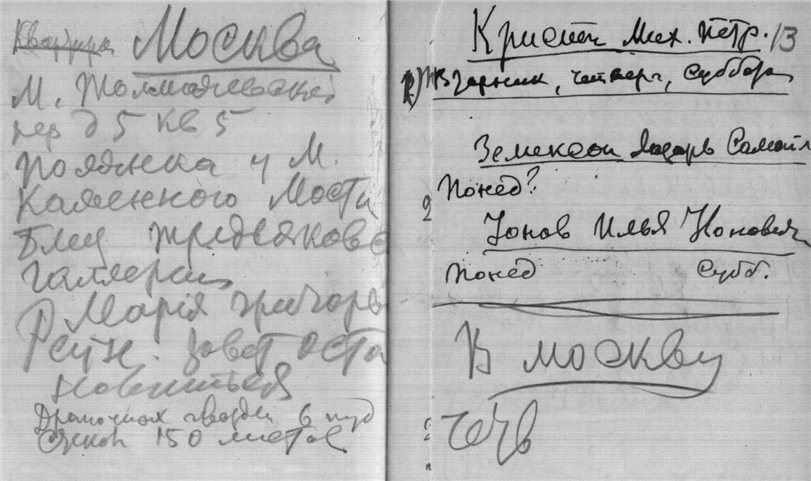 Квартира Москва
М. Толмачевский
пер д 5 кв 5
полянка у М.
Каменного Моста
Близ Третьяковс
галлереи
Мария Григорь
зовет оста
новиться
гвоздей 6 пуд
150 листов
Кристи Мих. Петр. 13
Вторник, четверг, Суббота
Лазарь Самойл
Понед?
2
Ионов Илья Ионович
Понед Субб.
В Москву